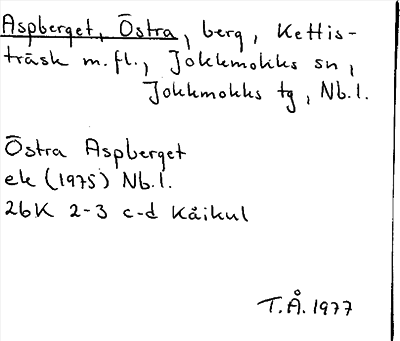 Aspberget, Östra, berg, Kettis-
träsk m.fl., Jokkmokks sn,
Jokkmokks tg, Nb.l.
Östra Aspberget
ek (1975) Nb.l.
26K 2-3 c-d Kåikul
T.Å. 1977